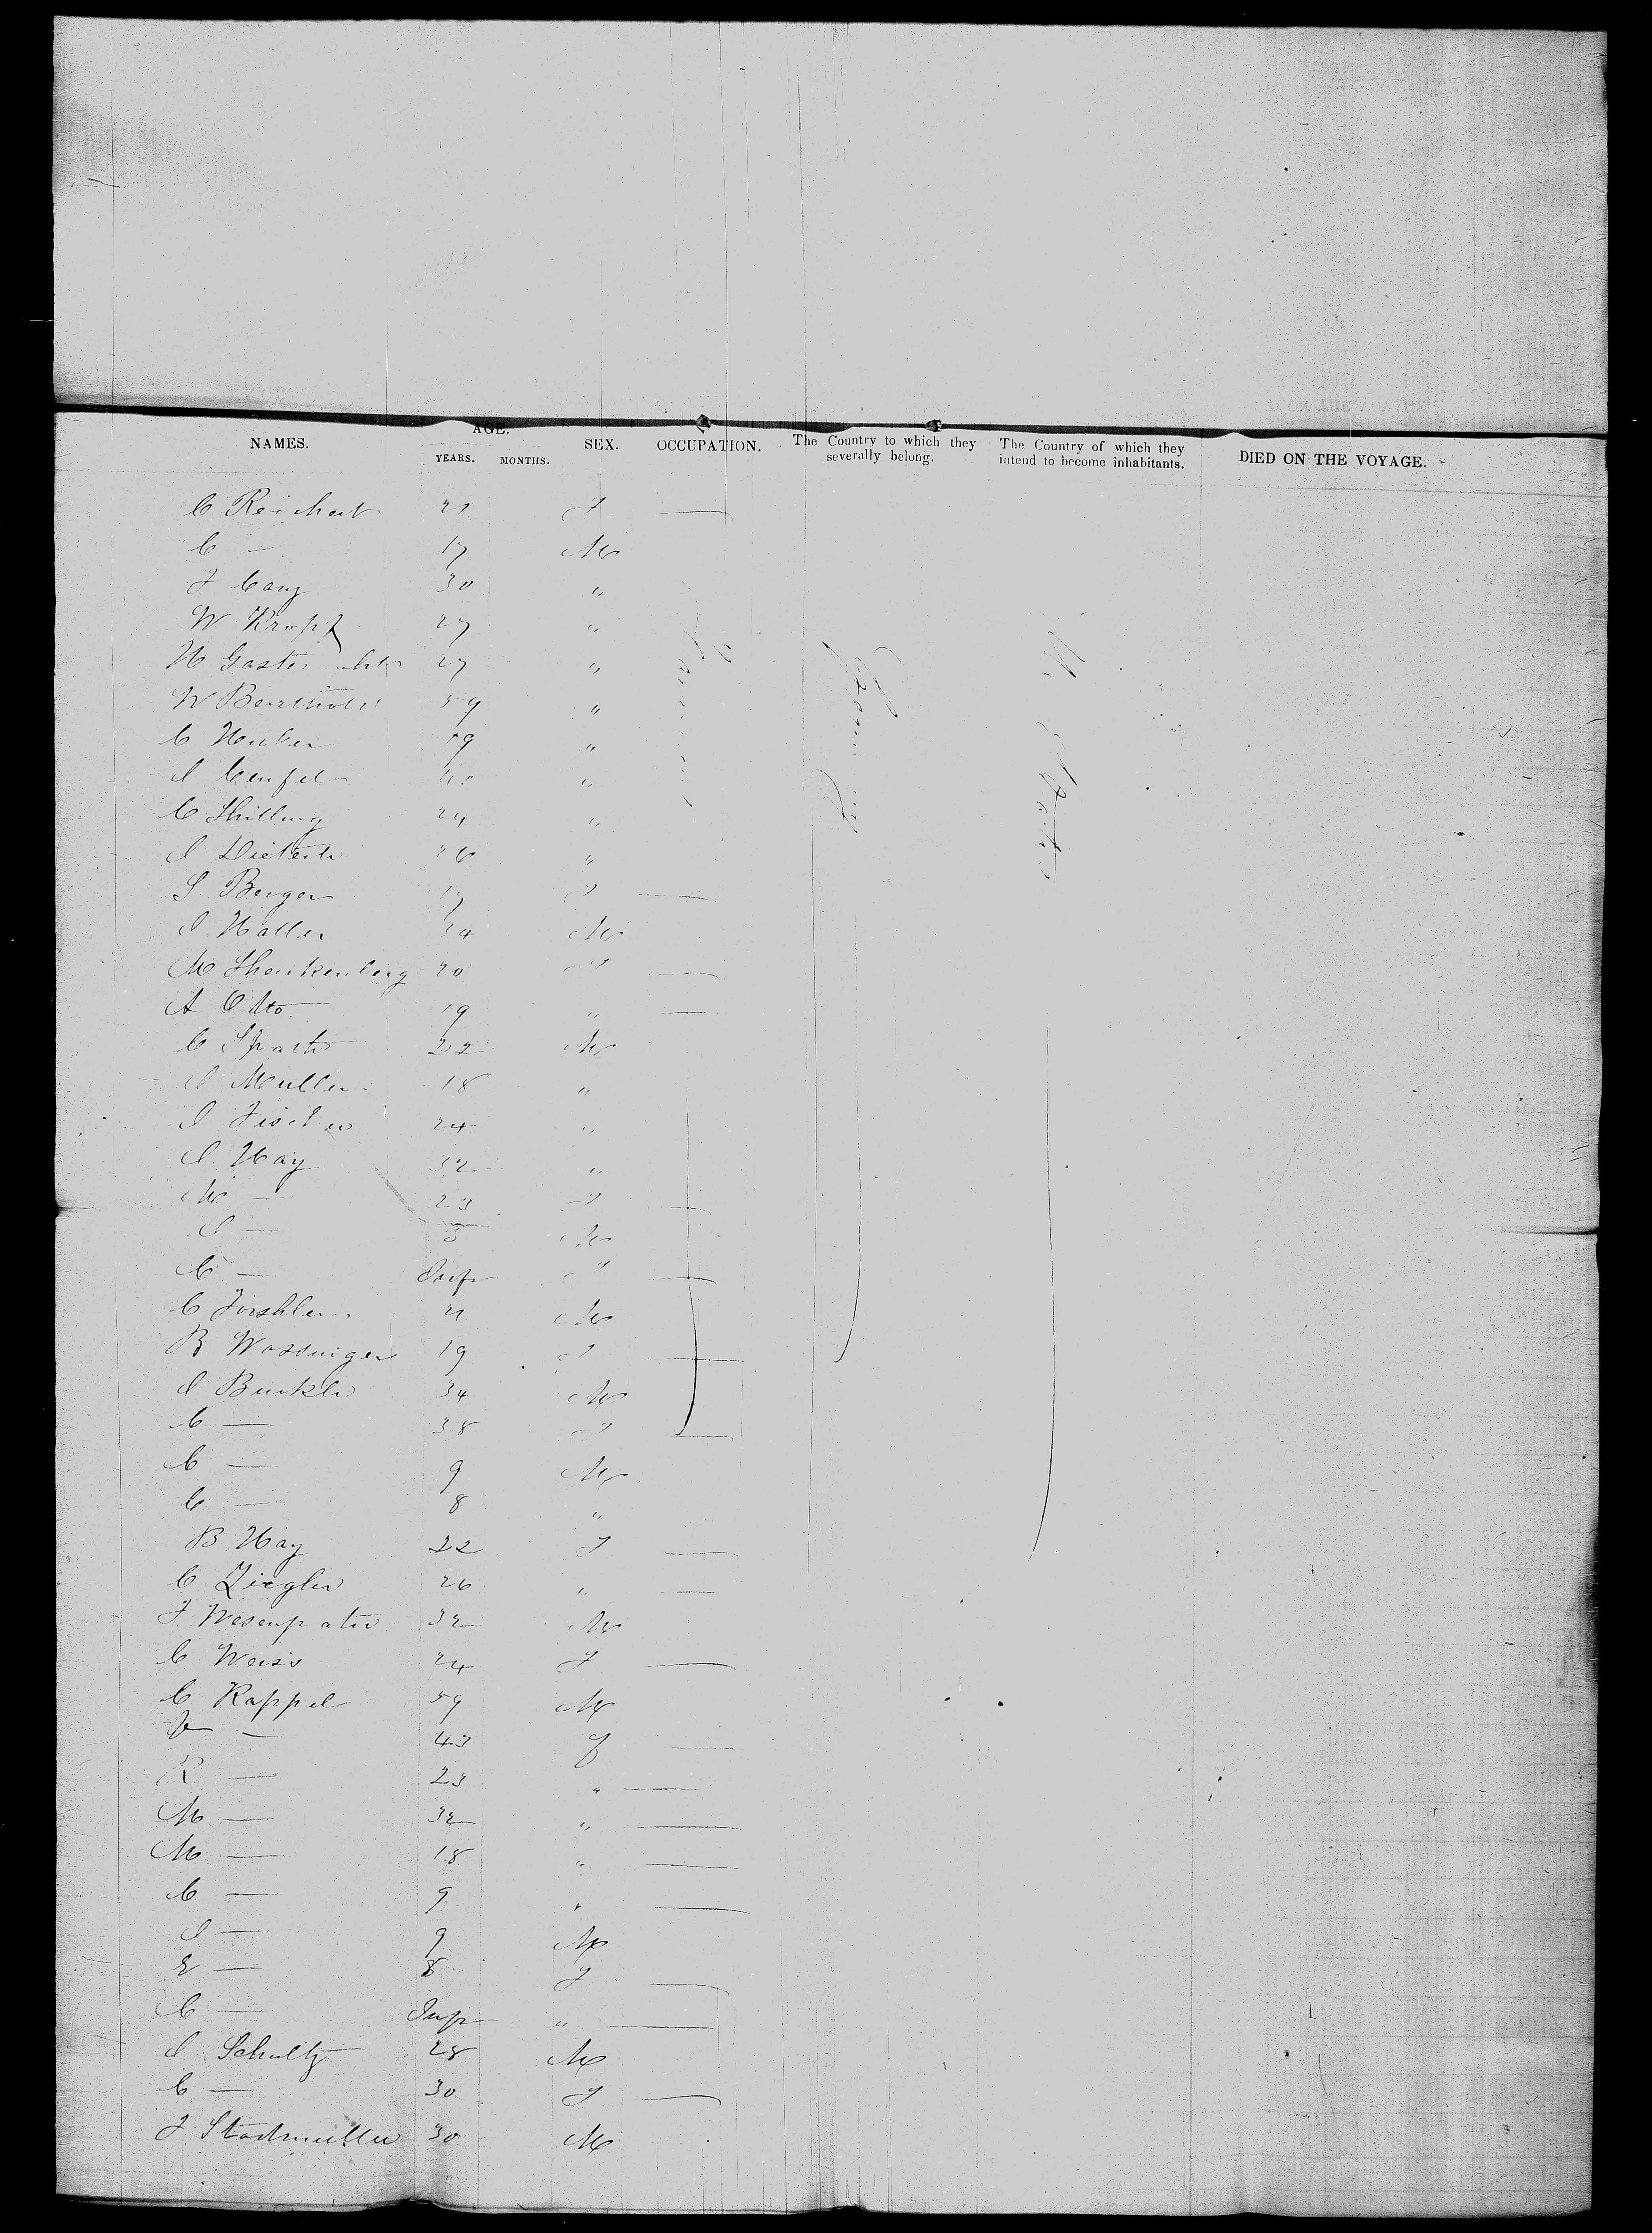 NAMES. AGE. SEX. OCCUPATION. The Country to which they severally belong. The Country of which they intend to become inhabitants. DIED ON THE VOYAGE.
YEARS. MONTHS.
Farmers
Germany
U. States
C Reichert 21 F —
C — 17 M
J 30 "
W Kropf 27 "
27 "
W Berthold 59 "
C Huber 19 "
"
C Shilling 24 "
J Dieterle 26 "
S Berger 17 F —
J Haller 34 M
M Shenkenberg 20 F —
A Otto 19 " —
C Spath 22 M
J Muller 18 "
J Fischer 24 "
J Hay 32 "
M — 23 F —
J — 3 M
C — Inf F —
C Forshler 21 M
B Wassinger 19 F —
J Burkle 34 M
C — 38 F —
C — 9 M
C — 8 "
B Hay 22 F —
C Ziegler 26 " —
J 32 M
C Weiss 24 F —
C Rappel 59 M
— 43 F —
R — 23 " —
M — 32 " —
M — 18 " —
C — 9 " —
J — 9 M
E — 8 F —
C — Inf " —
J Schultz 28 M
C — 30 F —
J Stadmuller 30 M